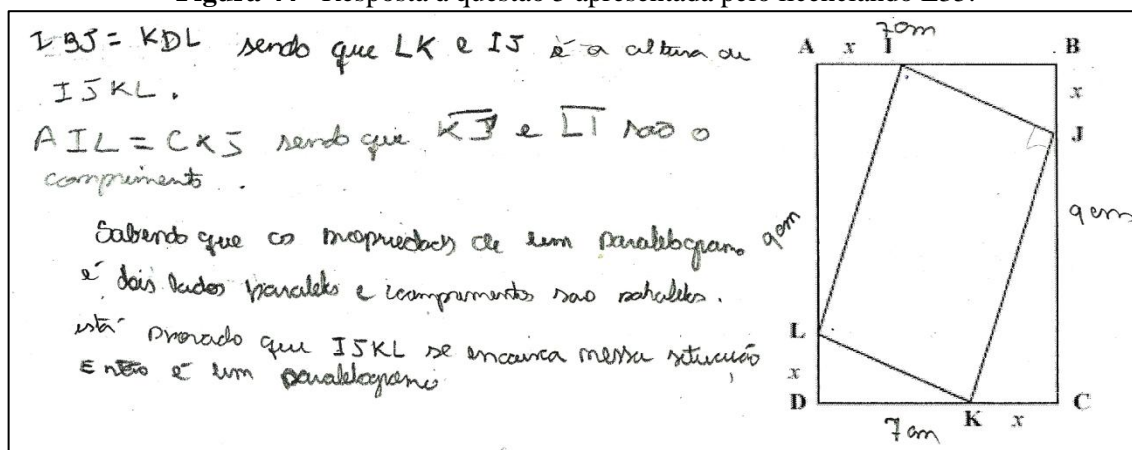 Figura 44 - Resposta à questão 3 apresentada pelo licenciando L33.
IBJ = KDL sendo que LK e IJ é a altura de
IJKL.
AIL = CKJ sendo que KJ e LI são o
comprimento.
Sabendo que as propriedades de um paralelogramo
é dois lados paralelos e comprimentos são paralelos.
está provado que IJKL se encaixa nessa situação
Então é um paralelogramo
7cm
A x I B
x
J
9cm 9cm
L
x
D K x C
7cm